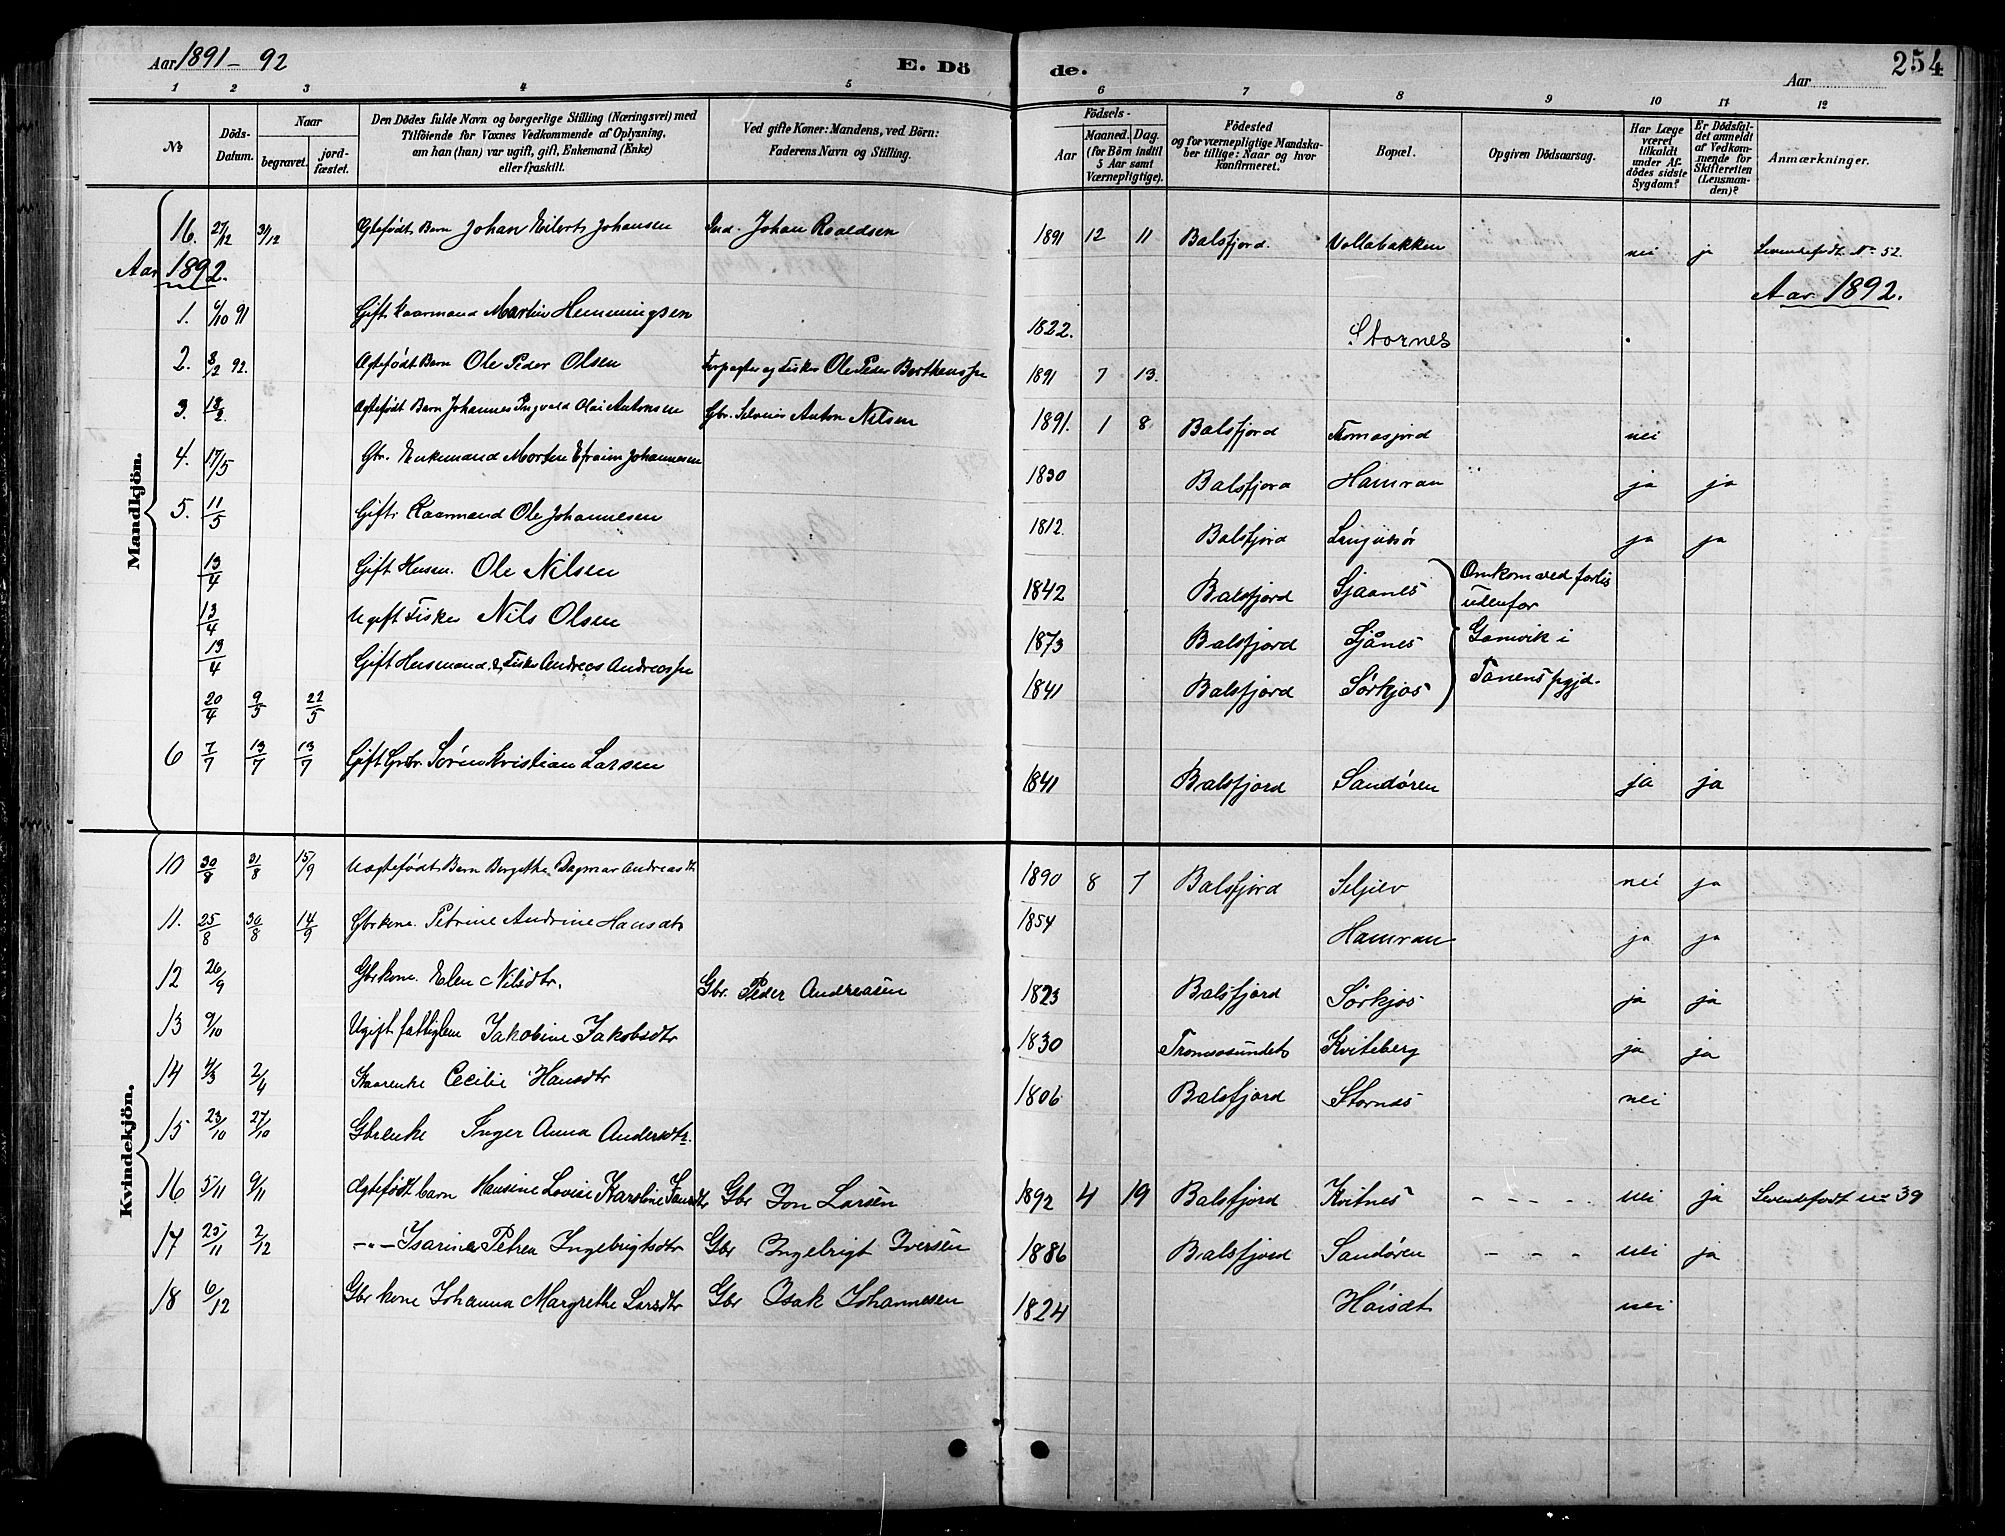 Aar 1891-92 E. Dö de. Aar 254
1 2 3 4 5 6 7 8 9 10 11 12
№ Döds-Datum. Naar begravet. jord-fæstet. Den Dödes fulde Navn og borgerlige Stilling (Næringsvei) med Tilföiende for Voxnes Vedkommende af Oplysning, om han (hun) var ugift, gift, Enkemand (Enke) eller fraskilt. Ved gifte Koner: Mandens, ved Börn: Faderens Navn og Stilling. Födsels- Aar Maaned. Dag. (for Börn indtil 5 Aar samt Værnepligtige). Födested og for værnepligtige Mandskaber tillige: Naar og hvor konfirmeret. Bopæl. Opgiven Dödsaarsag. Har Læge været tilkaldt under Afdödes sidste Sygdom? Er Dödsfaldet anmeldt af Vedkommende for Skifteretten (Lensmanden)? Anmærkninger.
Mandkjön.
16. 27/12 31/12 Ægtefødt Barn Johan Eilert Johansen Ind. Johan Roaldsen 1891 12 11 Balsfjord. Vollabakken nei ja Levendefødt No 52.
Aar 1892. Aar 1892.
1. 6/10 91 Gift Kaarmand Martin Hemmingsen 1822. Stornes
2. 8/2 92. Ægtefødt Barn Ole Peder Olsen Forpagter og Fisker Ole Peder Berthenssn 1891 7 13.
3. 18/2. Ægtefødt Barn Johannes Ingvald Olai Antonsen Gbr. Selveier Anton Nilsen 1891. 1 8 Balsfjord Tomasjord nei
4. 17/5 Gbr. Enkemand Morten Efraim Johannesen 1830 Balsfjord Hamran ja ja
5. 11/5 Gift Kaarmand Ole Johannesen 1812. Balsfjord ja ja
13/4 Gift Husm. Ole Nilsen 1842 Balsfjord Sjaanes Omkom ved forlis
13/4 Ugift Fisker Nils Olsen 1873 Balsfjord Sjånes udenfor Gamvik i
13/4 Gift Husmand & Fisker Andreas Andreassn 1841 Balsfjord Sørkjos Tanens pgjd.
20/4 9/5 22/5
6 7/7 13/7 13/7 Gift Gbr. Søren Kristian Larsen 1841 Balsfjord Sandøren ja ja
Kvindekjön.
10 30/8 31/8 15/9 Uægtefødt Barn Bergethe Dagmar Andreasdt 1890 8 7 Balsfjord Seljelv nei ja
11. 25/8 30/8 14/9 Gbrkone. Petrine Andrine Hansdtr 1854 Hamran ja ja
12 26/9 Gbrkone. Elen Nilsdtr. Gbr. Peder Andreasen 1823 Balsfjord Sørkjos ja ja
13 9/10 Ugift fattiglem Jakobine Jakobsdtr 1830 Tromsøsundet Kviteberg ja ja
14 4/3 2/4 Kaarenke Cecilie Hansdtr 1806 Balsfjord Stornes nei
15 23/10 27/10 Gbrenke Inger Anna Andersdtr.
16 5/11 9/11 Ægtefødt barn Hansine Lovise Karoline Jonsdtr Gbr Jon Larsen 1892 4 19 Balsfjord Kvitnes - - - - nei ja Levendefødt no 39
17 25/11 2/12 -"- Isarine Petrea Ingebrigtsdtr Gbr Ingebrigt Iversen 1886 Balsfjord Sandøren - - - nei ja
18 6/12 Gbr kone Johanna Margrethe Larsdtr Gbr Isak Johannesen 1824 nei